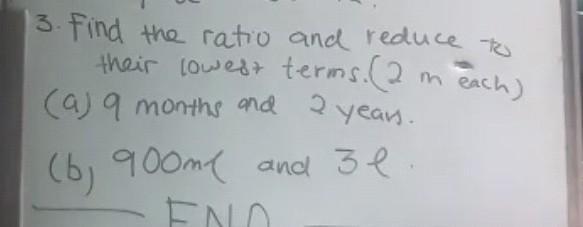 3. Find the ratio and reduce to
their lowest terms. (2 m each)
(a) 9 months and 2 years.
(b) 900ml and 3l.
END